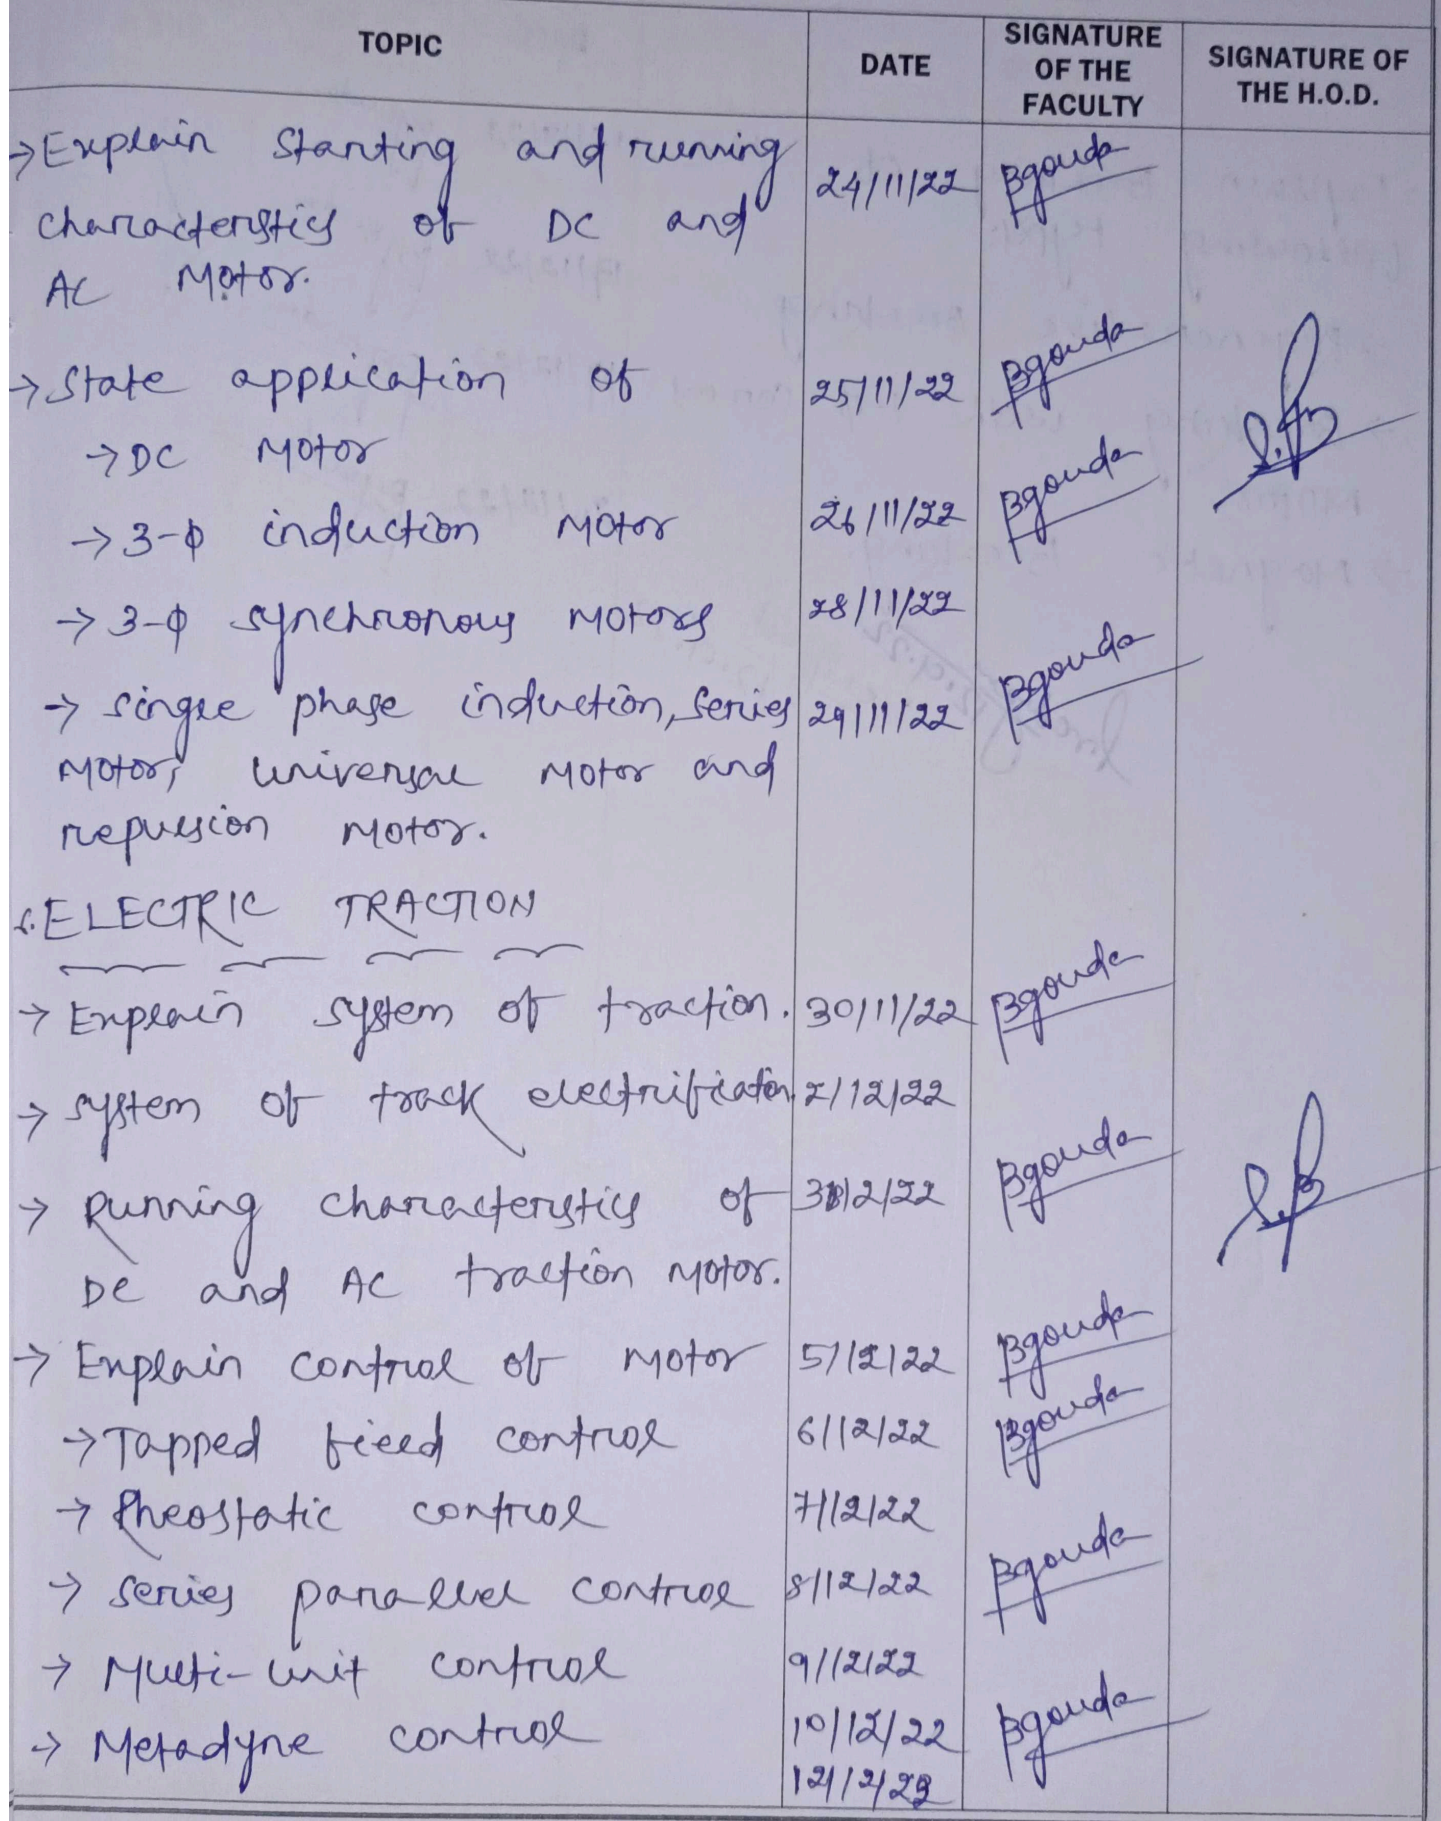 TOPIC
DATE
SIGNATURE OF THE FACULTY
SIGNATURE OF THE H.O.D.
→ Explain Starting and running 24/11/22 Bgouda
characteristics of DC and
AC Motor.
→ State application of 25/11/22 Bgouda
→ DC Motor
→ 3-φ induction Motor 26/11/22 Bgouda
→ 3-φ synchronous Motors 28/11/22
→ single phase induction, series 29/11/22 Bgouda
Motor, universal Motor and
repulsion Motor.
ELECTRIC TRACTION
→ Explain system of traction. 30/11/22 Bgouda
→ system of track electrification 2/12/22
→ Running characteristics of 3/12/22 Bgouda
DC and AC traction Motor.
→ Explain control of Motor 5/12/22 Bgouda
→ Tapped field control 6/12/22 Bgouda
→ Rheostatic control 7/12/22
→ series parallel control 8/12/22 Bgouda
→ Multi-unit control 9/12/22
→ Metadyne control 10/12/22 Bgouda
12/12/22